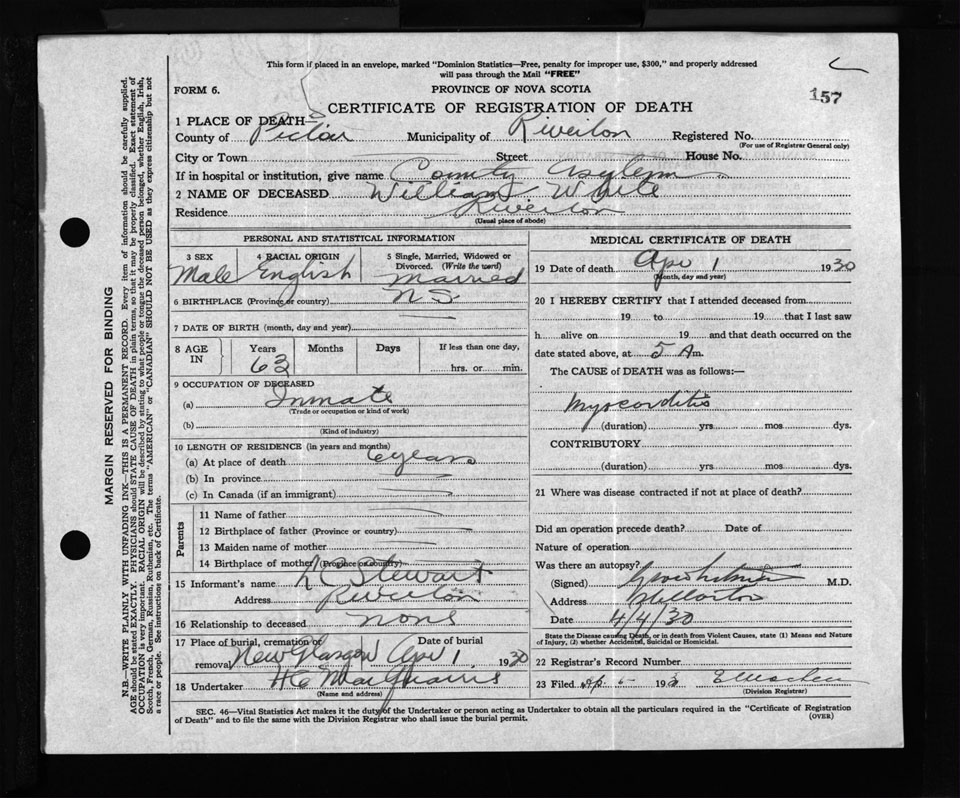 This form if placed in an envelope, marked "Dominion Statistics—Free, penalty for improper use, $300," and properly addressed
will pass through the Mail "FREE"
FORM 6.
PROVINCE OF NOVA SCOTIA
157
CERTIFICATE OF REGISTRATION OF DEATH
1 PLACE OF DEATH
County of Pictou Municipality of Riverton Registered No.
(For use of Registrar General only)
City or Town Street House No.
If in hospital or institution, give name County Asylum
2 NAME OF DECEASED William White
Residence Riverton
(Usual place of abode)
PERSONAL AND STATISTICAL INFORMATION
3 SEX 4 RACIAL ORIGIN 5 Single, Married, Widowed or
Divorced. (Write the word)
Male English Married
6 BIRTHPLACE (Province or country) N S.
7 DATE OF BIRTH (month, day and year)
8 AGE IN Years Months Days If less than one day,
63 hrs. or min.
9 OCCUPATION OF DECEASED
(a) Inmate
(Trade or occupation or kind of work)
(b)
(Kind of industry)
10 LENGTH OF RESIDENCE (in years and months)
(a) At place of death 6 years
(b) In province
(c) In Canada (if an immigrant)
Parents
11 Name of father
12 Birthplace of father (Province or country)
13 Maiden name of mother
14 Birthplace of mother (Province or country)
15 Informant's name Stewart
Address Riverton
16 Relationship to deceased none
17 Place of burial, cremation or Date of burial
removal New Glasgow Apr 1, 1930
18 Undertaker H C
(Name and address)
MEDICAL CERTIFICATE OF DEATH
19 Date of death Apr 1 1930
(Month, day and year)
20 I HEREBY CERTIFY that I attended deceased from
19 to 19 that I last saw
h alive on 19 and that death occurred on the
date stated above, at 5 A m.
The CAUSE of DEATH was as follows:—
Myocorditis
(duration) yrs mos dys.
CONTRIBUTORY
(duration) yrs. mos. dys.
21 Where was disease contracted if not at place of death?
Did an operation precede death? Date of
Nature of operation
Was there an autopsy?
(Signed) M.D.
Address Stellarton
Date 4/4/30
State the Disease causing Death, or in death from Violent Causes, state (1) Means and Nature
of Injury, (2) whether Accidental, Suicidal or Homicidal.
22 Registrar's Record Number
23 Filed 193
(Division Registrar)
SEC. 46—Vital Statistics Act makes it the duty of the Undertaker or person acting as Undertaker to obtain all the particulars required in the "Certificate of Registration
of Death" and to file the same with the Division Registrar who shall issue the burial permit.
(OVER)
MARGIN RESERVED FOR BINDING
N.B.—WRITE PLAINLY WITH UNFADING INK—THIS IS A PERMANENT RECORD. Every item of information should be carefully supplied.
AGE should be stated EXACTLY. PHYSICIANS should STATE CAUSE OF DEATH in plain terms, so that it may be properly classified. Exact statement of
OCCUPATION is very important. RACIAL ORIGIN will be described by stating to what people or tongue the deceased person belonged, whether English, Irish,
Scotch, French, German, Russian, Ruthenian, etc. The terms "AMERICAN" or "CANADIAN" SHOULD NOT BE USED as they express citizenship but not
a race or people. See instructions on back of Certificate.